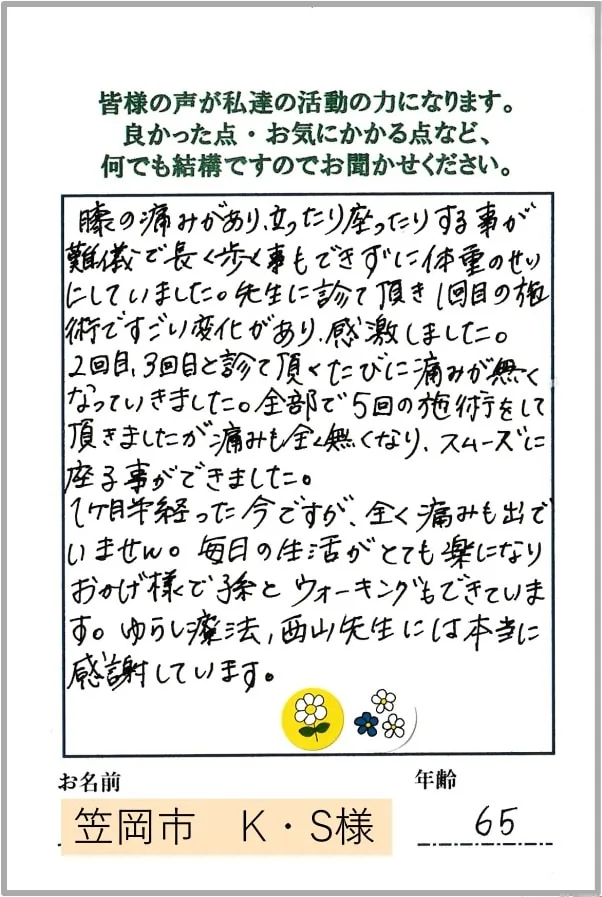 皆様の声が私達の活動の力になります。
良かった点・お気にかかる点など、
何でも結構ですのでお聞かせください。
膝の痛みがあり、立ったり座ったりする事が
難儀で長く歩く事もできずに体重のせい
にしていました。先生に診て頂き1回目の施
術ですごい変化があり、感激しました。
2回目、3回目と診て頂くたびに痛みが無く
なっていきました。全部で5回の施術をして
頂きましたが痛みも全く無くなり、スムーズに
座る事ができました。
1ヶ月半経った今ですが、全く痛みも出て
いません。毎日の生活がとても楽になり
おかげ様で孫とウォーキングもできていま
す。ゆらし療法、西山先生には本当に
感謝しています。
お名前
年齢
笠岡市 K・S様
65